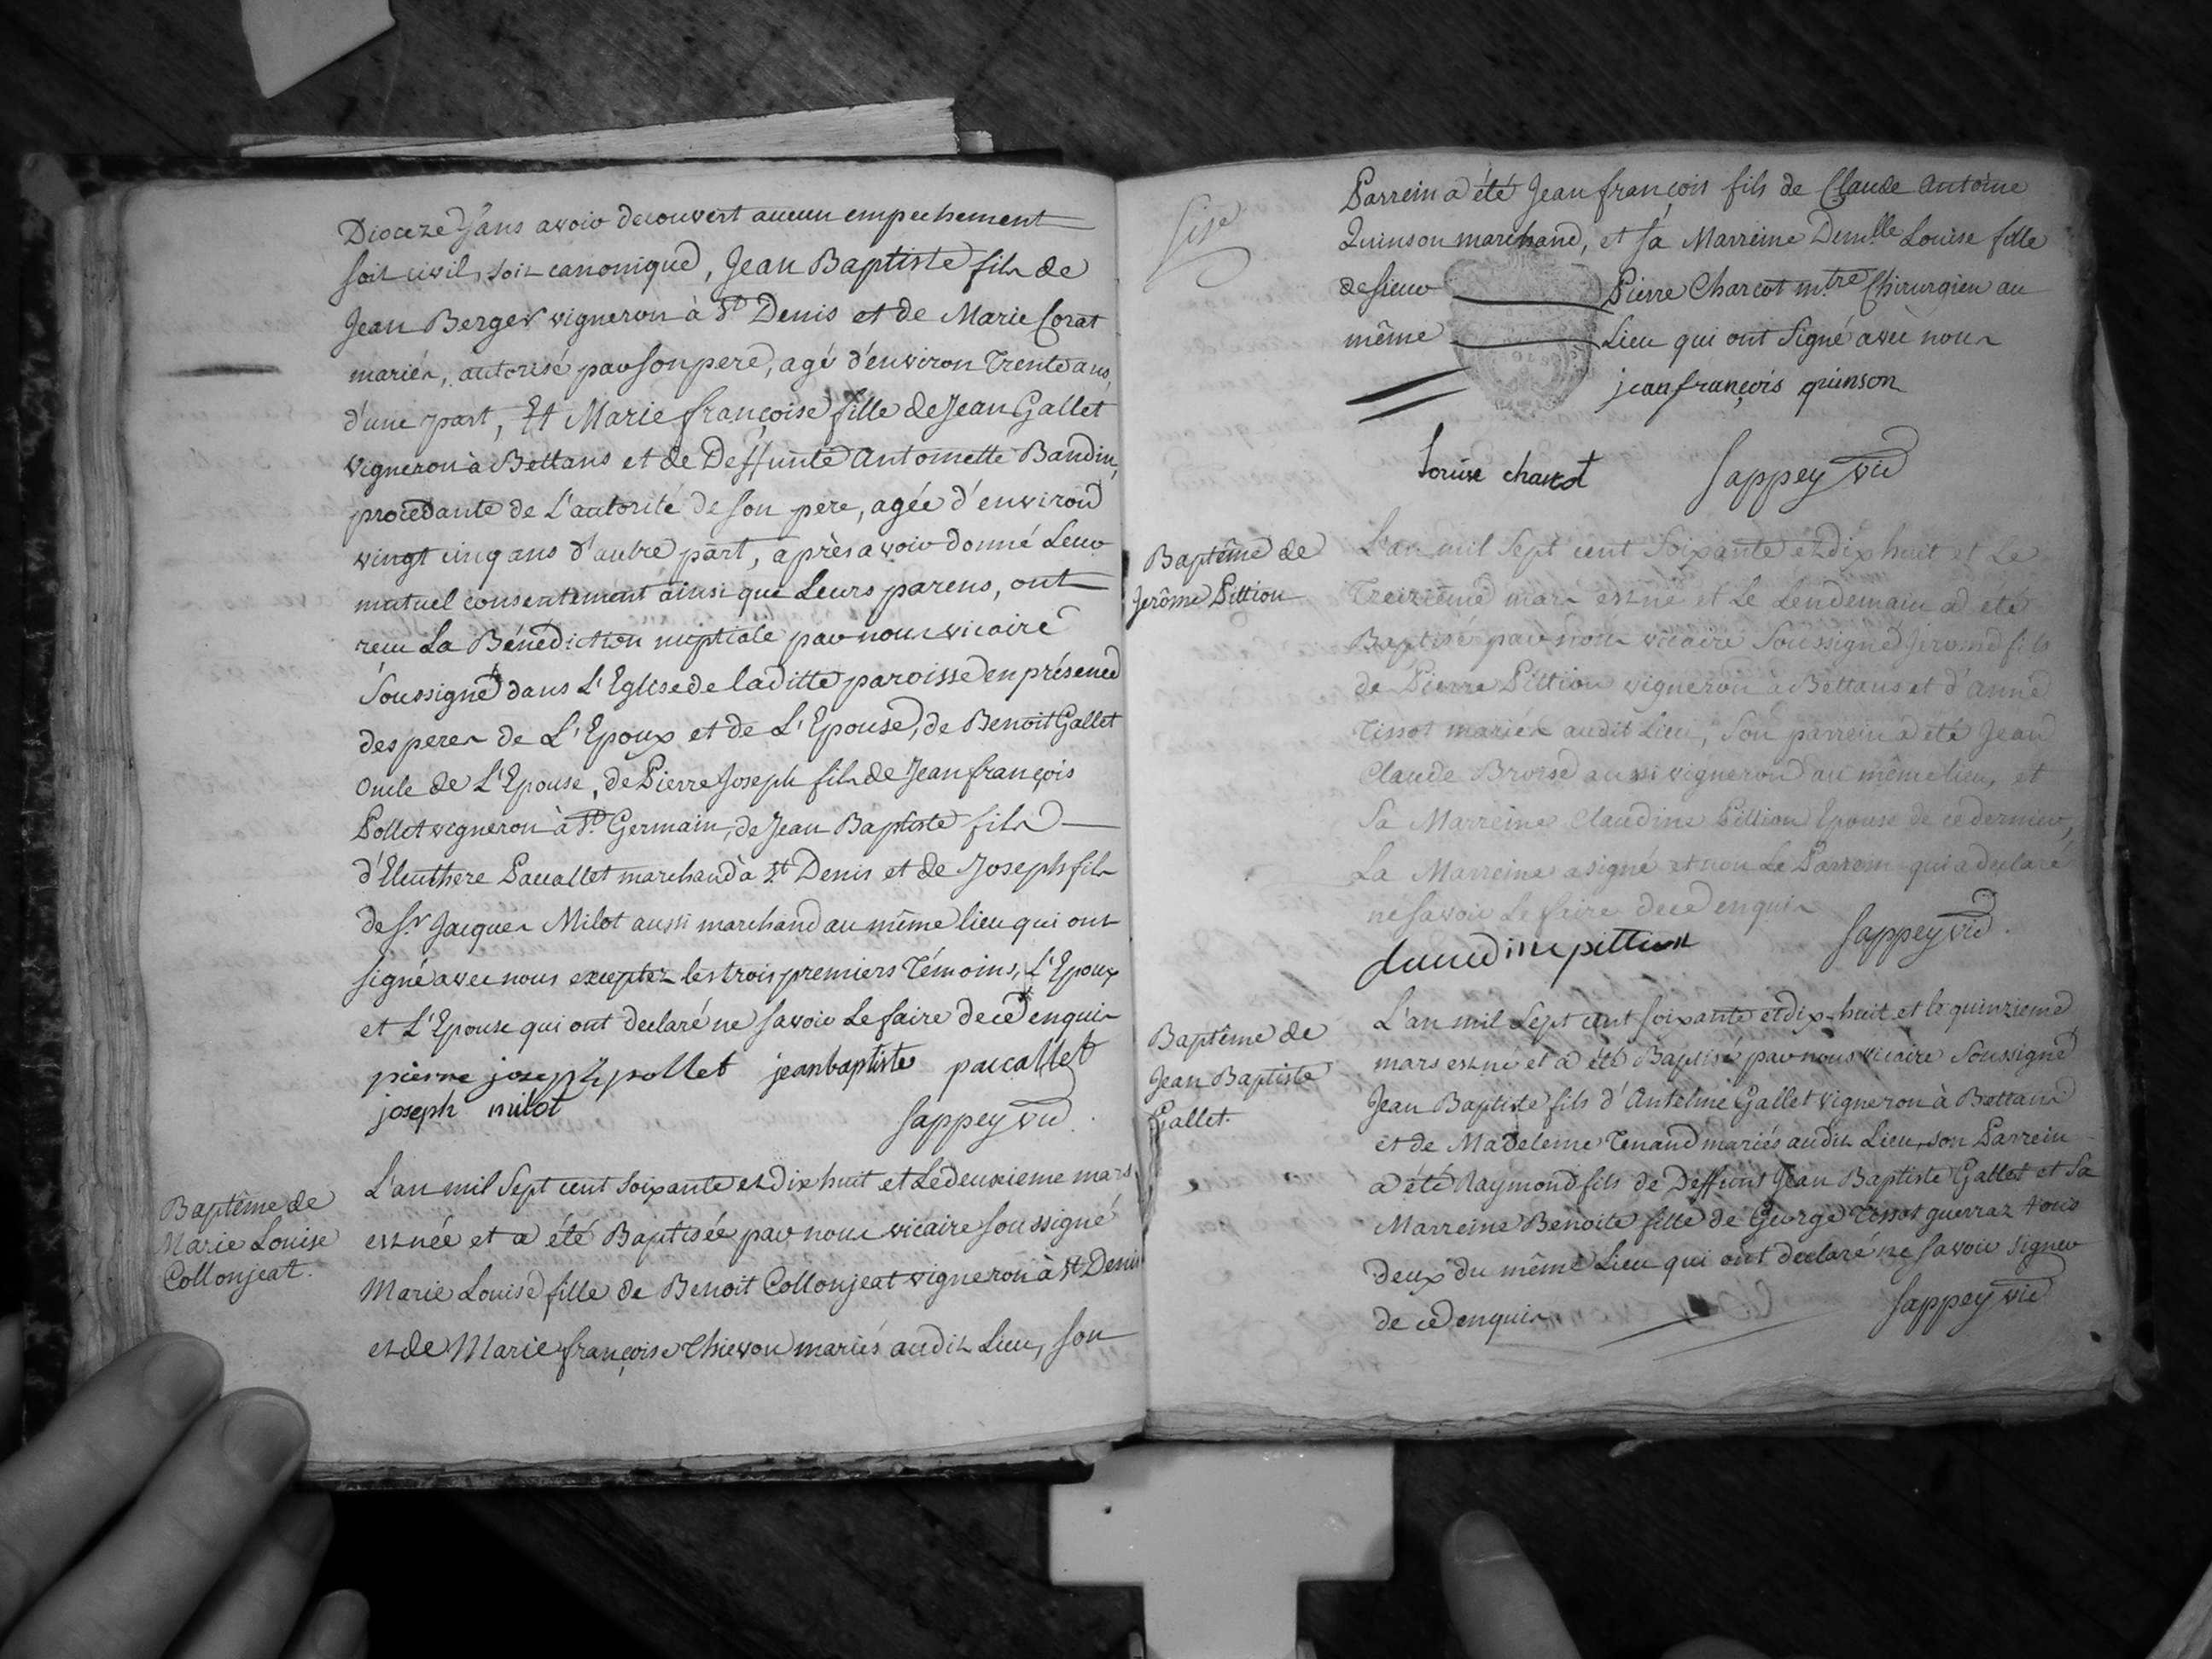 Dioceze sans avoir decouvert aucun empechement
soit civil, soit canonique, Jean Baptiste fils de
Jean Berger vigneron à St Denis et de Marie Corat
mariés, autorisé par son pere, agé d'environ Trente ans,
d'une part, Et Marie françoise fille de Jean Gallet
vigneron à Bettans et de Deffunte Antoinette Baudin,
procedante de L'autorité de son pere, agée d'environ
vingt cinq ans d'autre part, après avoir donné Leur
mutuel consentement ainsi que Leurs parens, ont
reçu La Bénédiction nuptiale par nous vicaire
Soussigné dans L'Eglise de laditte paroisse en présence
des peres de L'Epoux et de L'Epouse, de Benoit Gallet
oncle de L'Epouse, de Pierre Joseph fils de Jean françois
Pollet vigneron à St. Germain, de Jean Baptiste fils
d'Eleuthere Paccallet marchand à St Denis et de Joseph fils
de Sr Jacques Milot aussi marchand au même lieu qui ont
signé avec nous exceptez les trois premiers Témoins, L'Epoux
et L'Epouse qui ont declaré ne savoir Le faire de ce enquis
pierre joseph pollet jean baptiste paccallet
joseph milot
Sappey vic
Baptême de
Marie Louise
Collonjeat.
L'an mil Sept cent soixante et dix huit et Le deuxieme mars
est née et a été Baptisée par nous vicaire soussigné
Marie Louise fille de Benoit Collonjeat vigneron à St Denis
et de Marie françoise Thievon mariés audit Lieu, son
Parrein a été Jean françois fils de Claude Antoine
Quinson marchand, et sa Marreine Demlle Louise fille
de sieur Pierre Charcot mtre Chirurgien au
même Lieu qui ont Signé avec nous
jean françois quinson
Louise charcot Sappey vic
Baptême de
Jerôme Pittion
L'an mil Sept cent Soixante et dix huit et Le
Treizieme mars est né et Le Lendemain a eté
Baptisé par nous vicaire Soussigné Jerome fils
de Pierre Pittion vigneron à Bettans et d'Anne
Tissot mariés audit Lieu, Son parrein a eté Jean
Claude Broise aussi vigneron au même lieu, et
Sa Marreine Claudine Pittion Epouse de ce dernier,
La Marreine a signé et non Le Parrein qui a declaré
ne savoir Le faire de ce enquis
Sappey vic.
claudine pittion
Baptême de
Jean Baptiste
Gallet.
L'an mil Sept cent soixante et dix-huit et le quinzieme
mars est né et a été Baptisé par nous vicaire Soussigné
Jean Baptiste fils d'Antelme Gallet vigneron à Bettans
et de Madeleine Tenand mariés audit Lieu, son Parrein
a été Raymond fils de Deffunt Jean Baptiste Gallet et Sa
Marreine Benoite fille de George Tissot guerraz tous
deux du même Lieu qui ont declaré ne savoir signer
de ce enquis Sappey vic